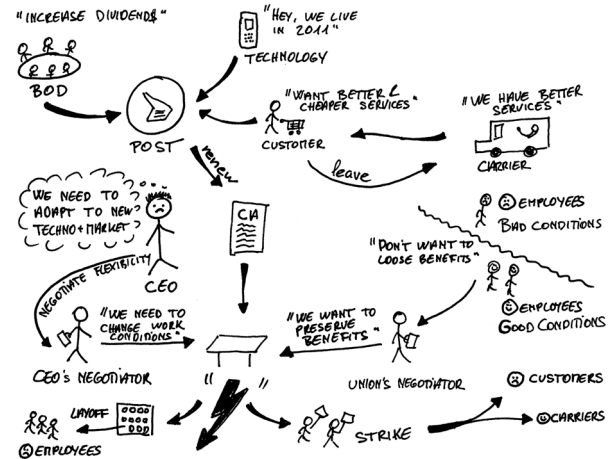 "INCREASE DIVIDENDS"
BOD
"HEY, WE LIVE
IN 2011"
TECHNOLOGY
POST
"WANT BETTER &
CHEAPER SERVICES"
CUSTOMER
"WE HAVE BETTER
SERVICES"
CARRIER
leave
renew
WE NEED TO
ADAPT TO NEW
TECHNO+MARKET
CEO
CLA
EMPLOYEES
BAD CONDITIONS
"DON'T WANT TO
LOOSE BENEFITS"
EMPLOYEES
GOOD CONDITIONS
NEGOTIATE FLEXIBILITY
"WE NEED TO
CHANGE WORK
CONDITIONS"
CEO'S NEGOTIATOR
"WE WANT TO
PRESERVE
BENEFITS"
UNION'S NEGOTIATOR
" "
LAYOFF
EMPLOYEES
STRIKE
CUSTOMERS
CARRIERS